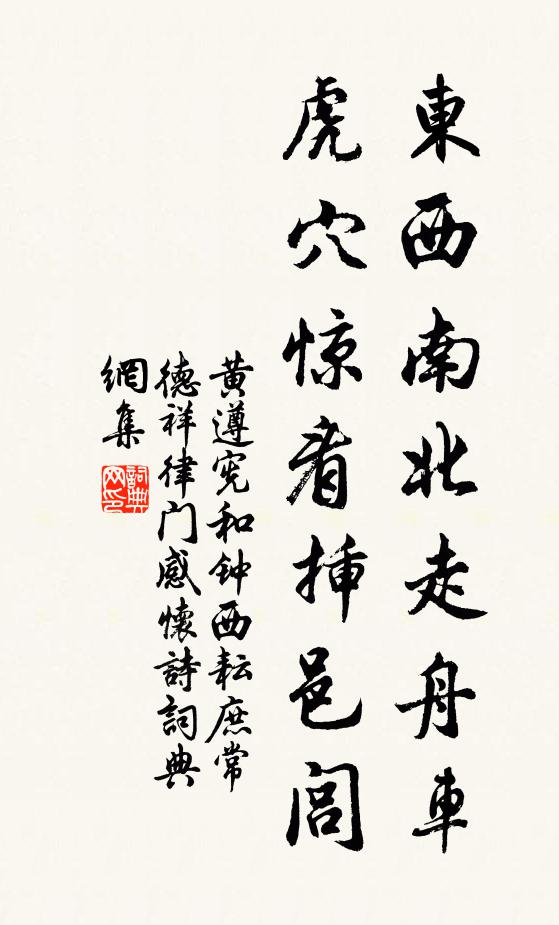 東西南北走舟車
虎穴惊看挿邑闾
黄遵宪和钟西耘庶常
德祥律门感懷詩詞典
網集
詞典网印